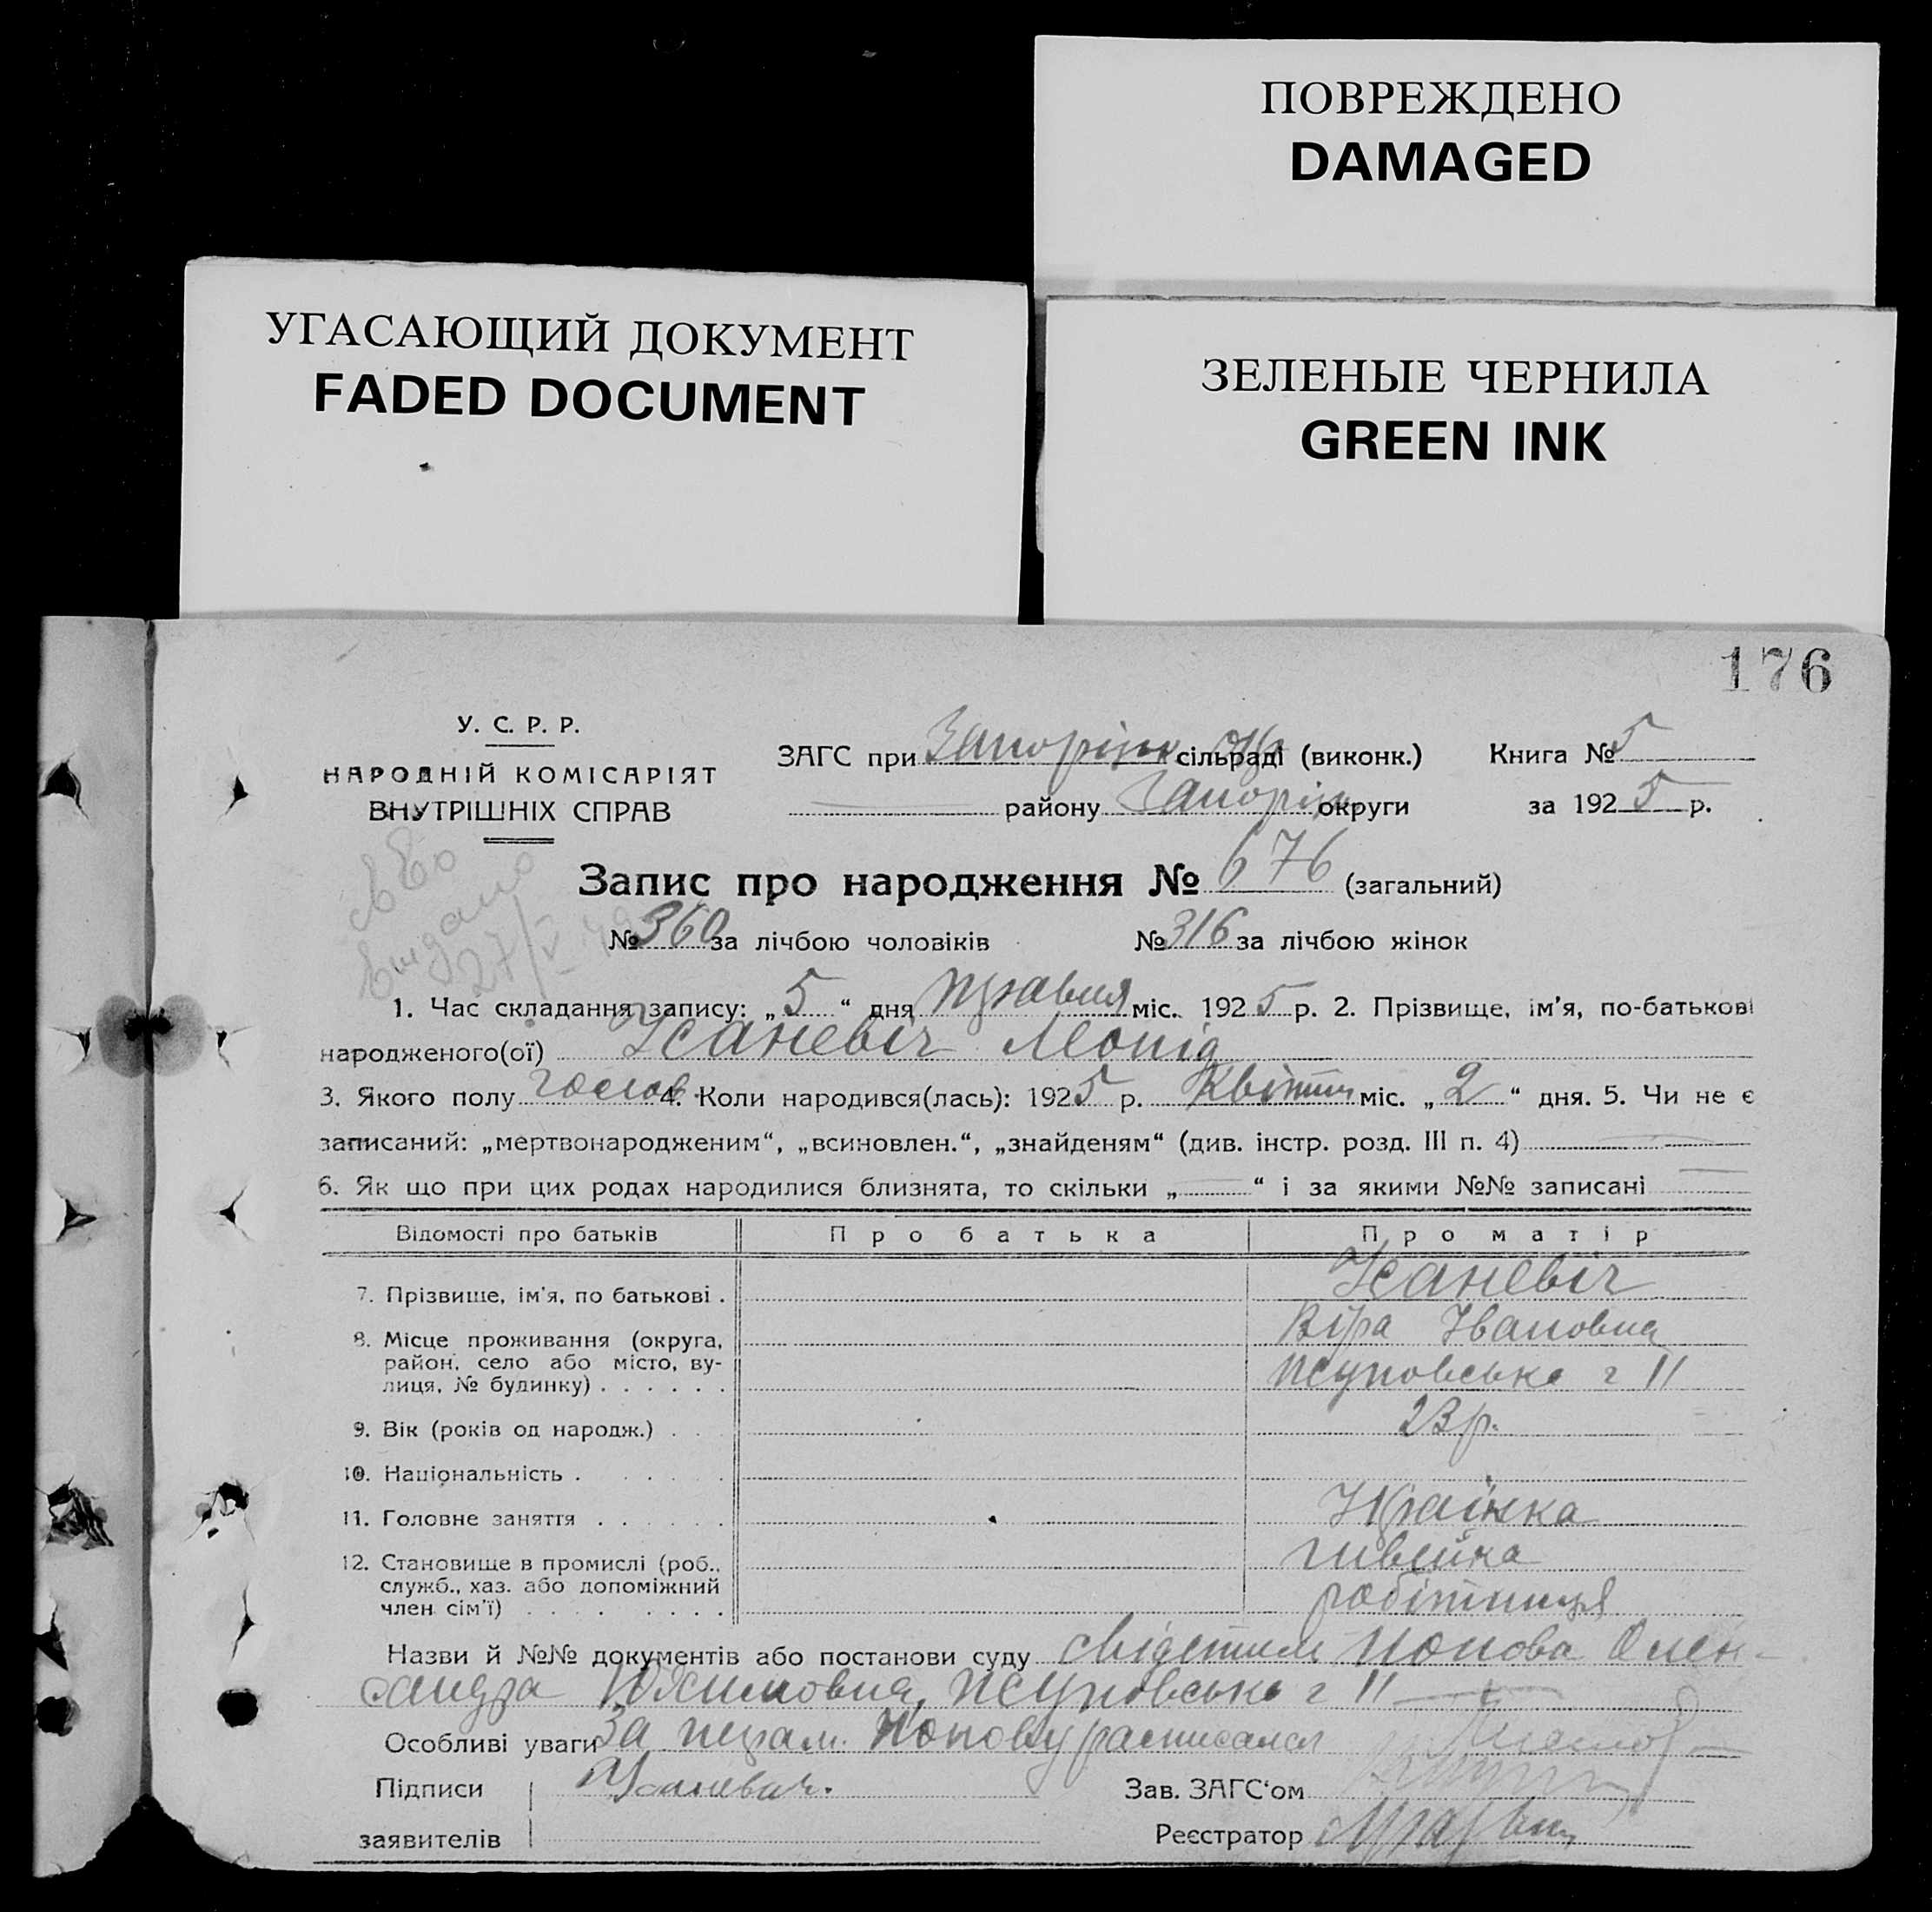 ПОВРЕЖДЕНО
DAMAGED
УГАСАЮЩИЙ ДОКУМЕНТ
FADED DOCUMENT
ЗЕЛЕНЫЕ ЧЕРНИЛА
GREEN INK
176
У. С. Р. Р.
НАРОДНІЙ КОМІСАРІЯТ
ВНУТРІШНІХ СПРАВ
ЗАГС при Запоріж сільраді (виконк.) Книга № 5
району Запоріж округи за 1925 р.
видано
27/V
Запис про народження № 676 (загальний)
№ 360 за лічбою чоловіків № 316 за лічбою жінок
1. Час складання запису: „5“ дня травня міс. 1925 р. 2. Прізвище, ім'я, по-батькові
народженого(ої) Усаневіч Леонід
3. Якого полу чолов. 4. Коли народився(лась): 1925 р. Квітня міс. „2“ дня. 5. Чи не є
записаний: „мертвонародженим“, „всиновлен.“, „знайденям“ (див. інстр. розд. III п. 4)
6. Як що при цих родах народилися близнята, то скільки „ “ і за якими №№ записані
Відомості про батьків Про батька Про матір
7. Прізвище, ім'я, по батькові . Усаневіч
Віра Івановна
8. Місце проживання (округа,
район, село або місто, ву-
лиця, № будинку) . . . . . . ч 11
9. Вік (років од народж.) . . 23 р.
10. Національність . . . . .
Українка
11. Головне заняття . . . . . .
швейка
12. Становище в промислі (роб.,
служб., хаз. або допоміжний
член сім'ї) . . . . . . . . робітниця
Назви й №№ документів або постанови суду свідетели Попова Олек-
сандра Юхимовна, ч 11
Особливі уваги За Попову расписался
Підписи Усаневич. Зав. ЗАГС‘ом
заявителів Реєстратор